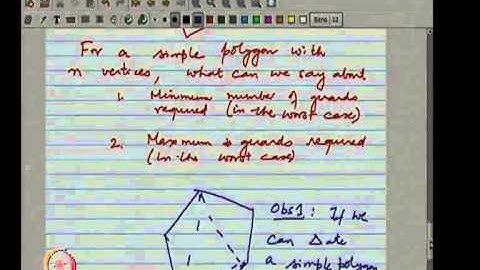 For a simple polygon with
n vertices, what can we say about
1. Minimum number of guards
required (in the worst case)
2. Maximum # guards required
(in the worst case)
1
1
Obs1: If we
can Δate
a simple polygon